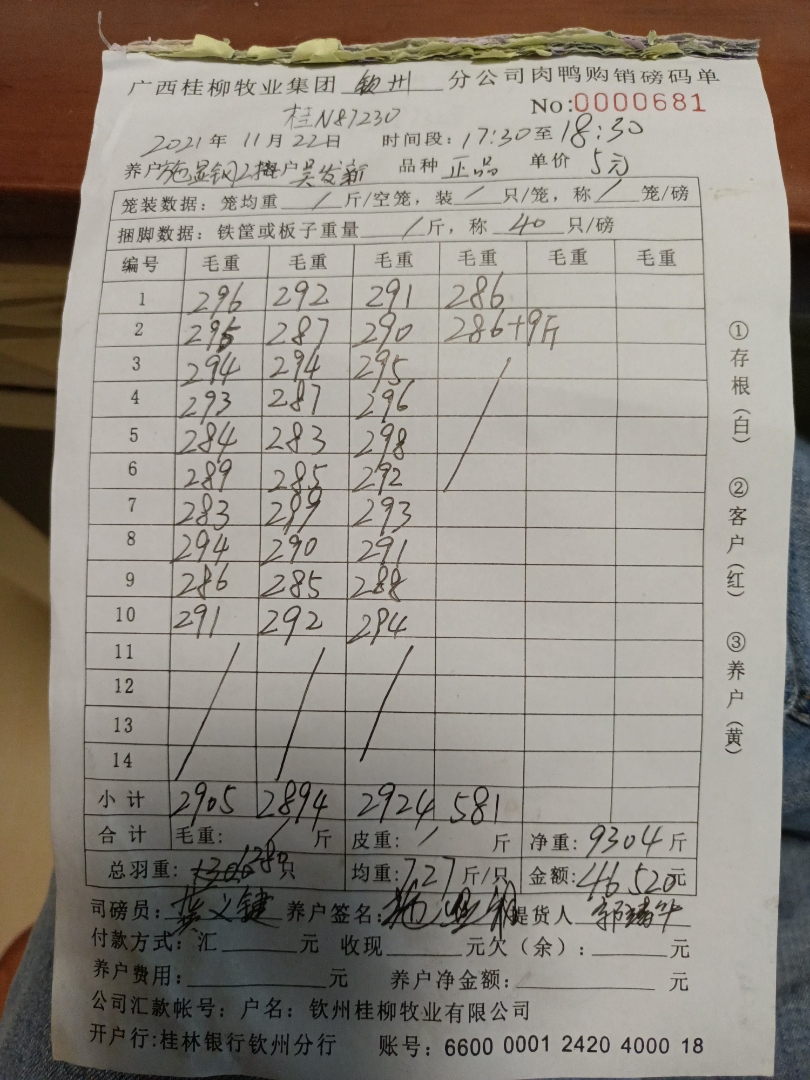 广西桂柳牧业集团 钦州 分公司肉鸭购销磅码单
No:0000681
桂N87230
2021年 11月 22日 时间段: 17:30至18:30
养户 客户 吴发新 品种 正品 单价 5元
笼装数据: 笼均重 / 斤/空笼, 装 / 只/笼, 称 / 笼/磅
捆脚数据: 铁筐或板子重量 / 斤, 称 40 只/磅
编号 毛重 毛重 毛重 毛重 毛重 毛重
1 296 292 291 286
2 295 287 290 286+9斤
3 294 294 295 /
4 293 287 296
5 284 283 298
6 289 285 292
7 283 289 293
8 294 290 291
9 286 285 288
10 291 292 294
11 / / /
12
13
14
小计 2905 2894 2924 581
合计 毛重: / 斤 皮重: / 斤 净重: 9304斤
总羽重: 1280只 均重: 7.27斤/只 金额: 46520元
司磅员: 龚义键 养户签名: 提货人
付款方式: 汇 元 收现 元欠(余): 元
养户费用: 元 养户净金额: 元
公司汇款帐号: 户名: 钦州桂柳牧业有限公司
开户行:桂林银行钦州分行 账号: 6600 0001 2420 4000 18
①存根(白) ②客户(红) ③养户(黄)